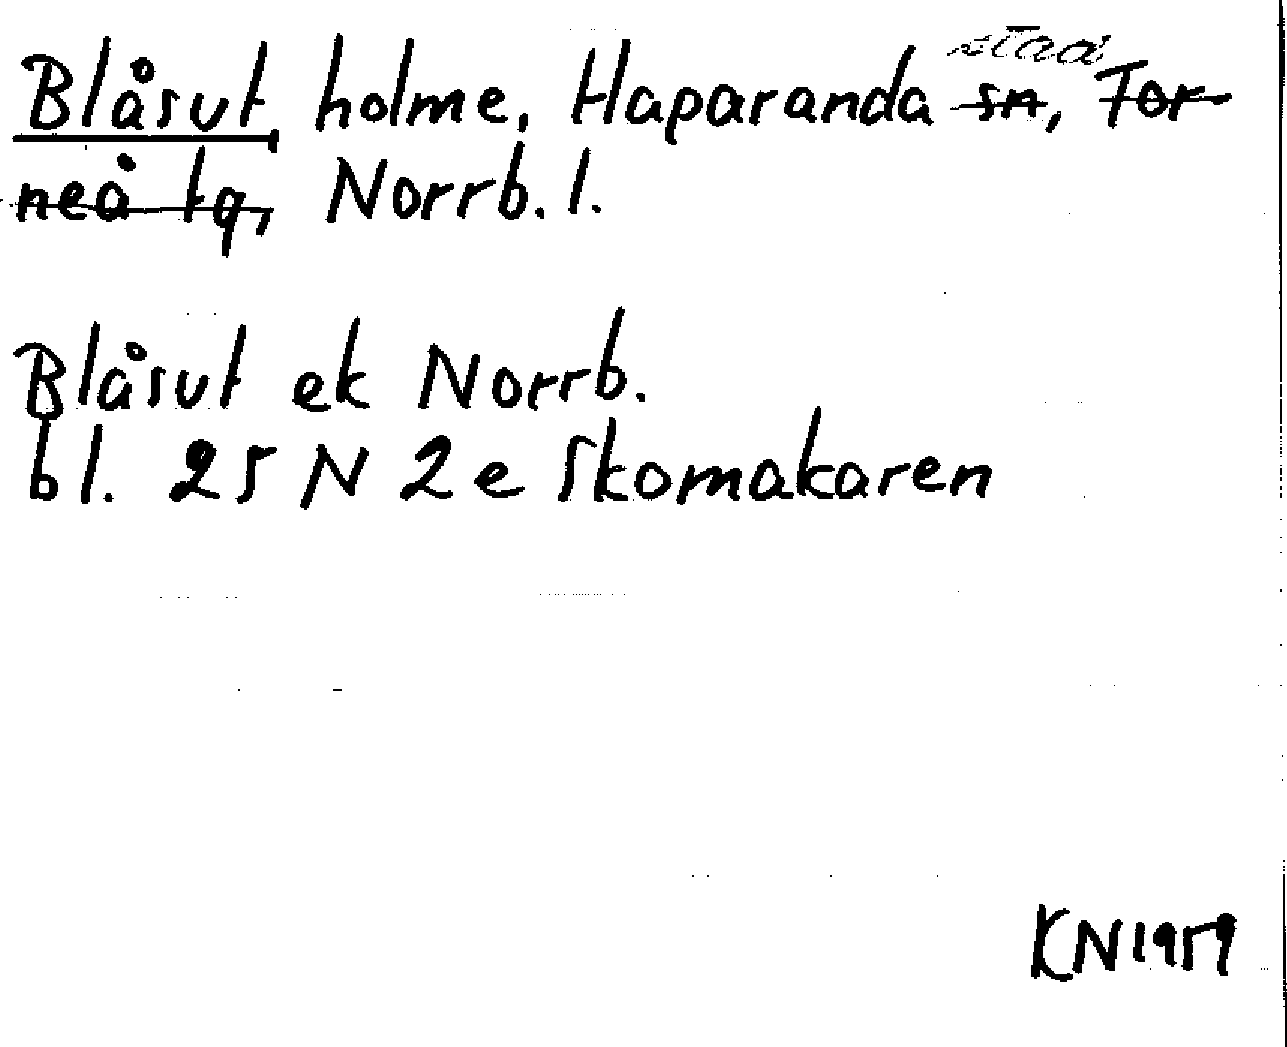 Blåsut, holme, Haparanda stad sn, Tor-
neå tg, Norrb. l.
Blåsut ek Norrb.
bl. 25 N 2 e Skomakaren
KN 1959